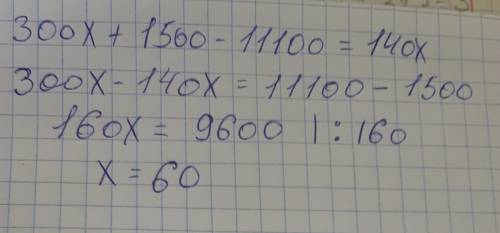 300x + 1500 - 11100 = 140x
300x - 140x = 11100 - 1500
160x = 9600 | : 160
x = 60